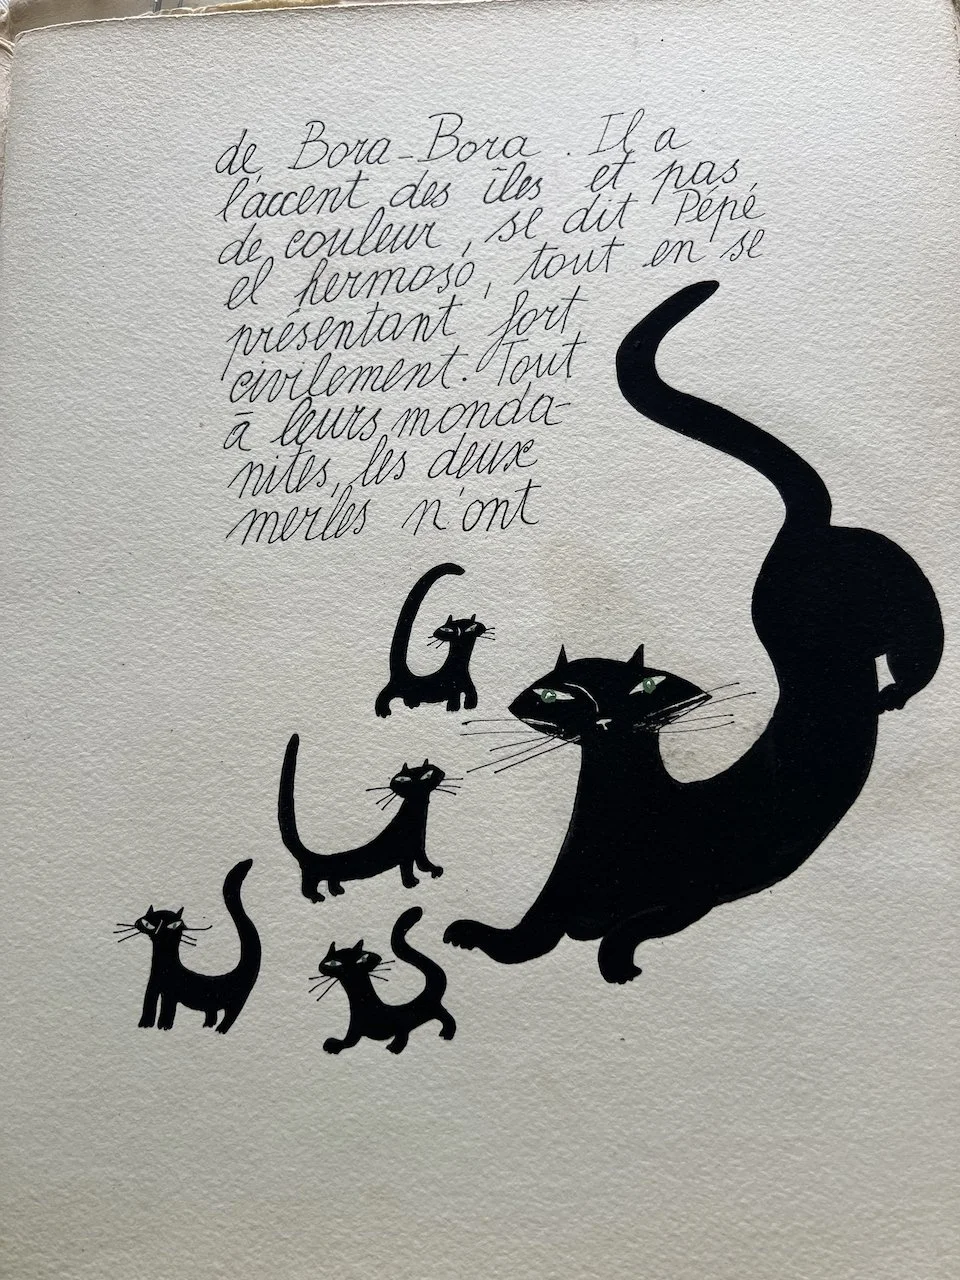 de Bora-Bora. Il a
l'accent des îles et pas
de couleur, se dit Pépé
el hermoso, tout en se
présentant fort
civilement. Tout
à leurs monda-
nités, les deux
merles n'ont